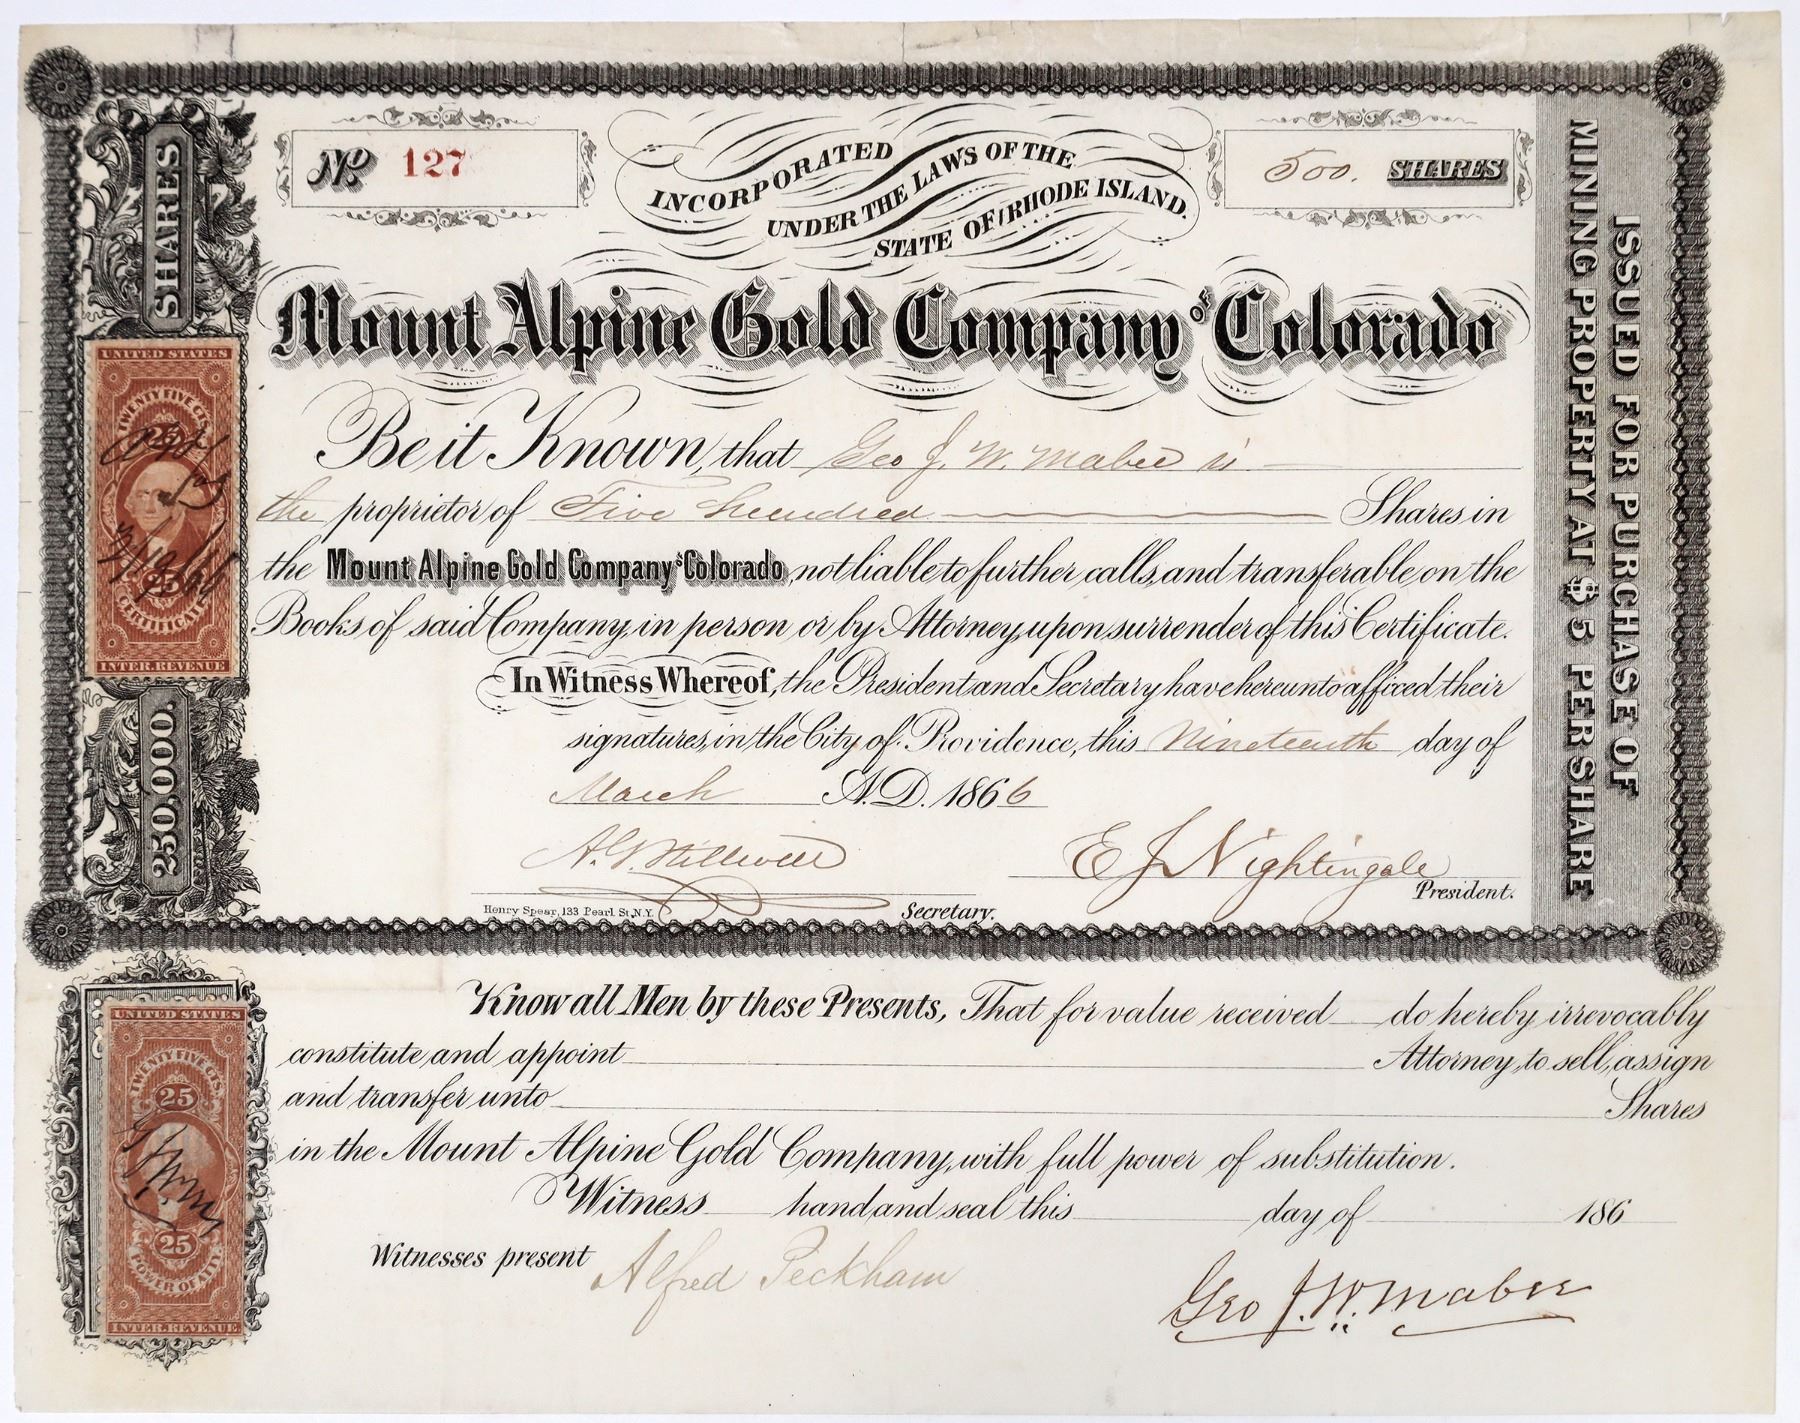 Nº 127
INCORPORATED
UNDER THE LAWS OF THE
STATE OF RHODE ISLAND.
500. SHARES
Mount Alpine Gold Company of Colorado
Be it Known, that Geo J. W. Mabee is
the proprietor of Five Hundred Shares in
the Mount Alpine Gold Company of Colorado, not liable to further calls, and transferable on the
Books of said Company, in person or by Attorney, upon surrender of this Certificate.
In Witness Whereof, the President and Secretary have hereunto affixed their
signatures, in the City of Providence, this Nineteenth day of
March A.D. 1866
A. G. Stillwell
Secretary.
E J Nightingale
President.
Henry Spear, 133 Pearl St, N.Y.
SHARES
250,000.
UNITED STATES
TWENTY FIVE CTS.
25
CERTIFICATE
INTER. REVENUE
ISSUED FOR PURCHASE OF
MINING PROPERTY AT $5 PER SHARE
Know all Men by these Presents, That for value received do hereby irrevocably
constitute and appoint Attorney, to sell, assign
and transfer unto Shares
in the Mount Alpine Gold Company, with full power of substitution.
Witness hand and seal this day of 186
Witnesses present Alfred Peckham
Geo J. W. Mabee
UNITED STATES
TWENTY FIVE CTS.
25
25
POWER OF ATTY.
INTER. REVENUE